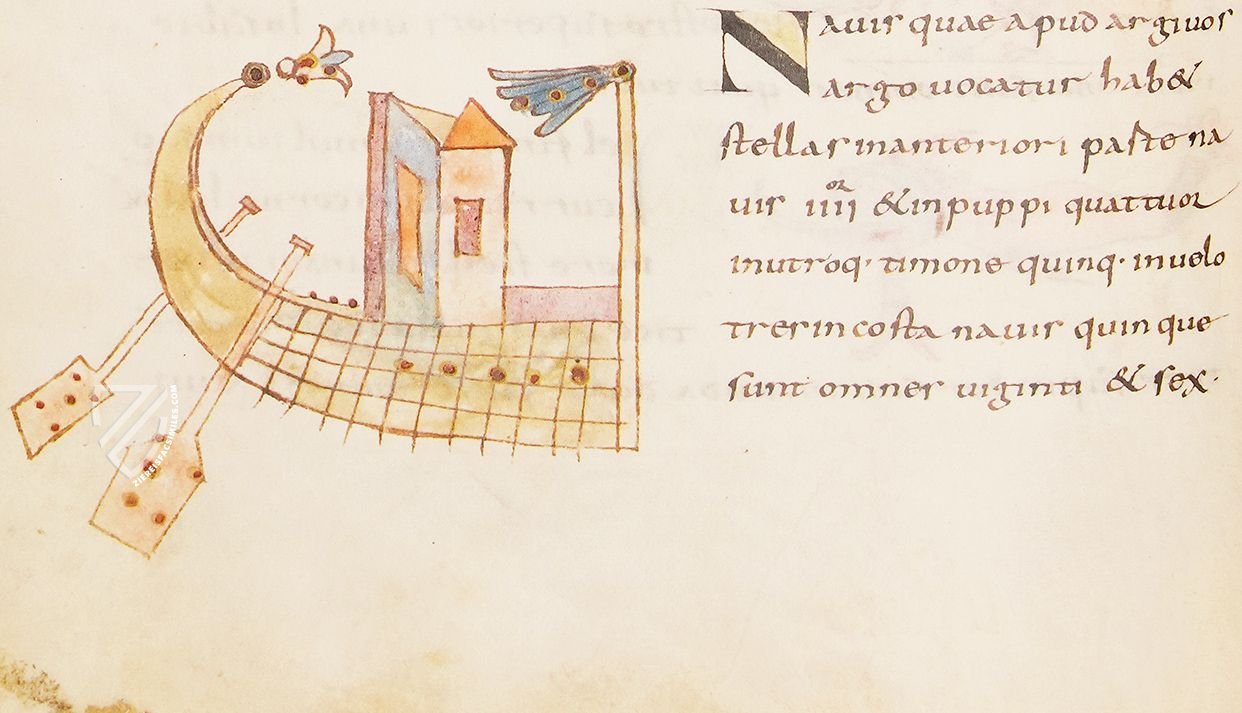 Nauis quae apud argiuos
argo uocatur hab&
stellas inanteriori paste na
uis iiii or & inpuppi quattuor
inutroq· timone quinq· inuelo
tres in costa nauis quinque
sunt omnes uiginti & sex·
ZIEREISFACSIMILES.COM